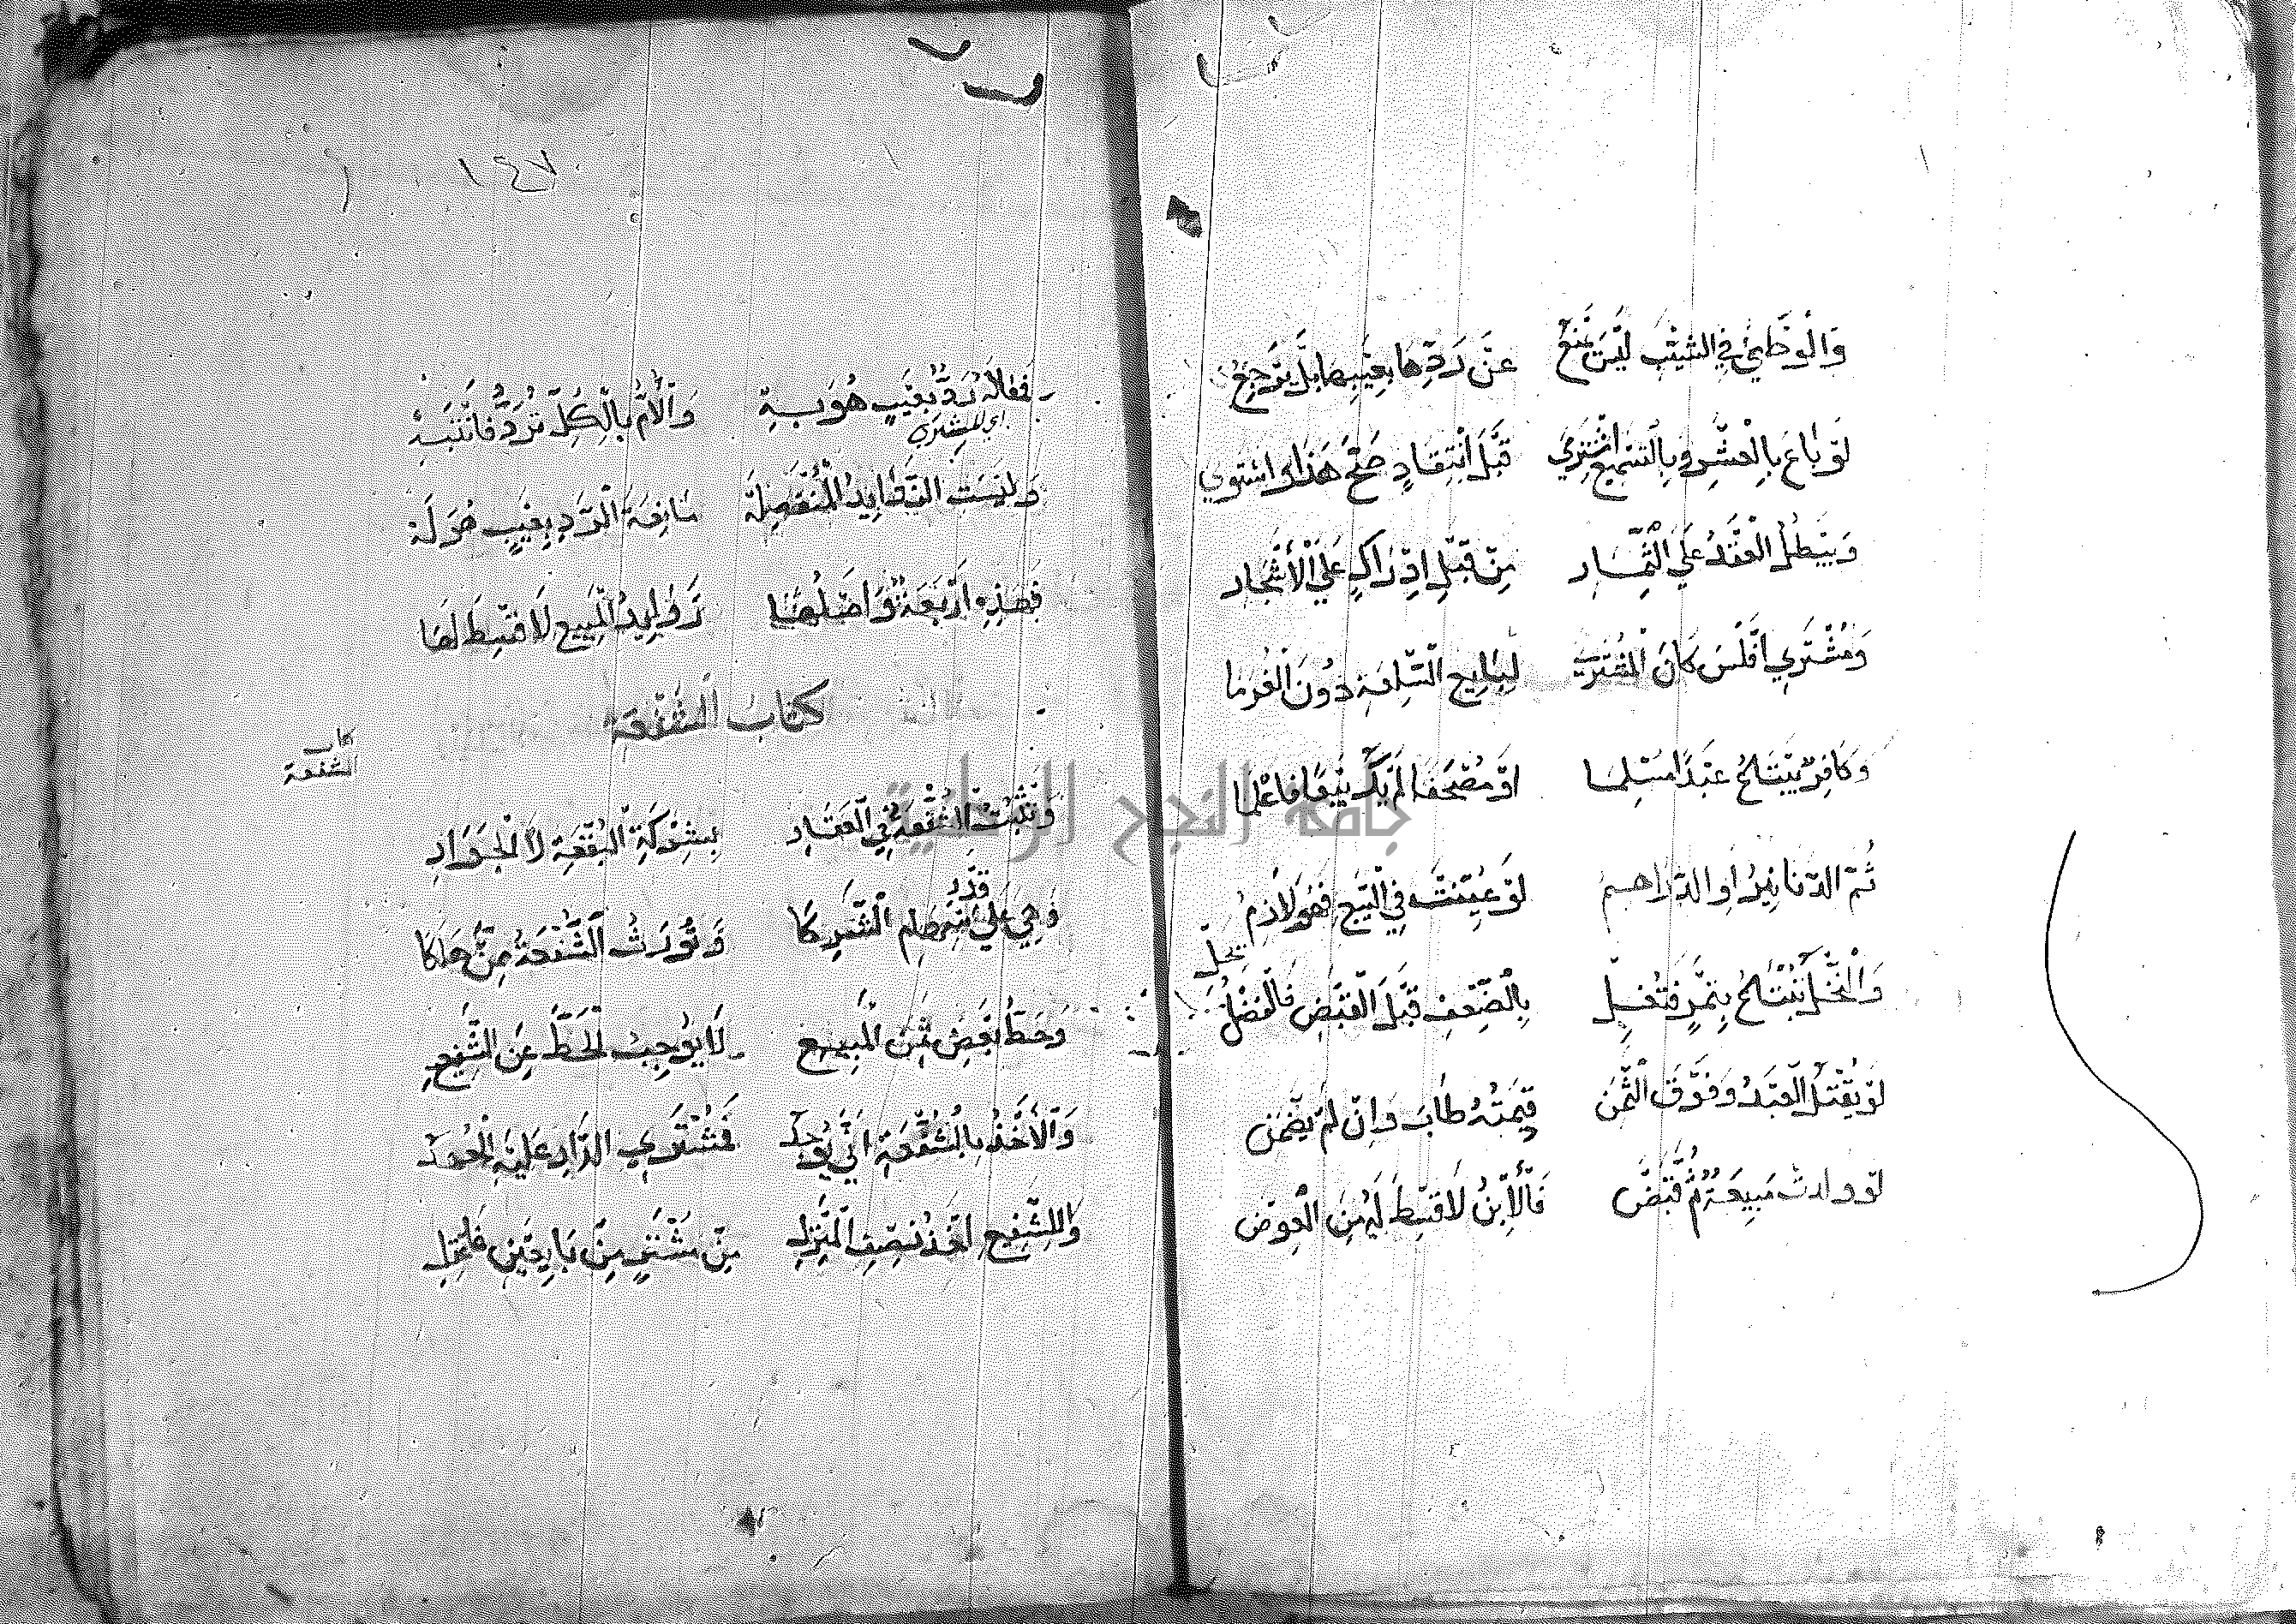 وَالْوَطْيُ فِي الثَّيِّبِ لَيْسَ يَمْنَعُ عَنْ رَدِّهَا بِعَيْبِهَا بَلْ يَرْجِعُ
لَوْ بَاعَ بِالْعَشْرِ وَبِالتِّسْعِ اشْتَرَى قَبْلَ انْتِقَادٍ صَحَّ هَذَا
وَيَبْطُلُ الْعَقْدُ عَلَى الثِّمَارِ مِنْ قَبْلِ إِدْرَاكٍ عَلَى الْأَشْجَارِ
وَمُشْتَرِي أَفْلَسَ كَانَ لِبَايِعِ السِّلْعَةِ دُونَ الْغُرَمَا
وَكَافِرٌ يَبْتَاعُ عَبْدًا مُسْلِمَا أَوْ مُصْحَفًا لَمْ يَكُ بَيْعًا فَاعْلَمَا
ثُمَّ الدَّنَانِيرُ أَوِ الدَّرَاهِمُ لَوْ عُيِّنَتْ فِي الْبَيْعِ فَهْوَ لَازِمُ
يحلّ
وَالنَّخْلُ تُبْتَاعُ بِتَمْرٍ فَتَغِلْ بِالضِّعْفِ قَبْلَ الْقَبْضِ فَالْفَضْلُ
لَوْ يُقْتَلُ الْعَبْدُ وَفَوْقَ الثَّمَنِ قِيمَتُهُ طَابَ وَإِنْ لَمْ يَضْمَنِ
لَوْ وَلَدَتْ مَبِيعَةٌ ثُمَّ قَبَضْ فَالْاِبْنُ لَا قِسْطَ لَهُ مِنَ الْعِوَضْ
١٤٧
رُدَّ بِعَيْبٍ هُوَ بِهِ وَالْأُمُّ بِالْكُلِّ تُرَدُّ فَانْتَبِهْ
اي للمشتري
وَلَيْسَتِ الزَّوَايِدُ الْمُنْفَصِلَهْ مَانِعَةَ الرَّدِّ بِعَيْبٍ
فَهَذِهِ أَرْبَعَةٌ وَأَصْلُهَا زَوَايِدُ الْمَبِيعِ لَا قِسْطَ لَهَا
كتاب الشفعة
كتاب
الشفعة
وَتَثْبُتُ الشُّفْعَةُ فِي الْعَقَارِ بِشِرْكَةِ الْبُقْعَةِ لَا الْجِوَارِ
قَدْر
وَهِيَ عَلَى سِهَامِ الشُّرَكَا وَتُورَثُ الشُّفْعَةُ مِمَّنْ هَلَكَا
وَحَطُّ بَعْضِ ثَمَنِ الْمَبِيعِ لَا يُوجِبُ الْحَطَّ عَنِ الشَّفِيعِ
وَالْأَخْذُ بِالشُّفْعَةِ أَنَّى يُوجَدُ فَمُشْتَرِي الدَّارِ عَلَيْهِ الْعُهَدُ
وَلِلشَّفِيعِ أَخْذُ نِصْفِ الْمَنْزِلِ مِنْ مُشْتَرٍ مِنْ بَايِعَيْنِ